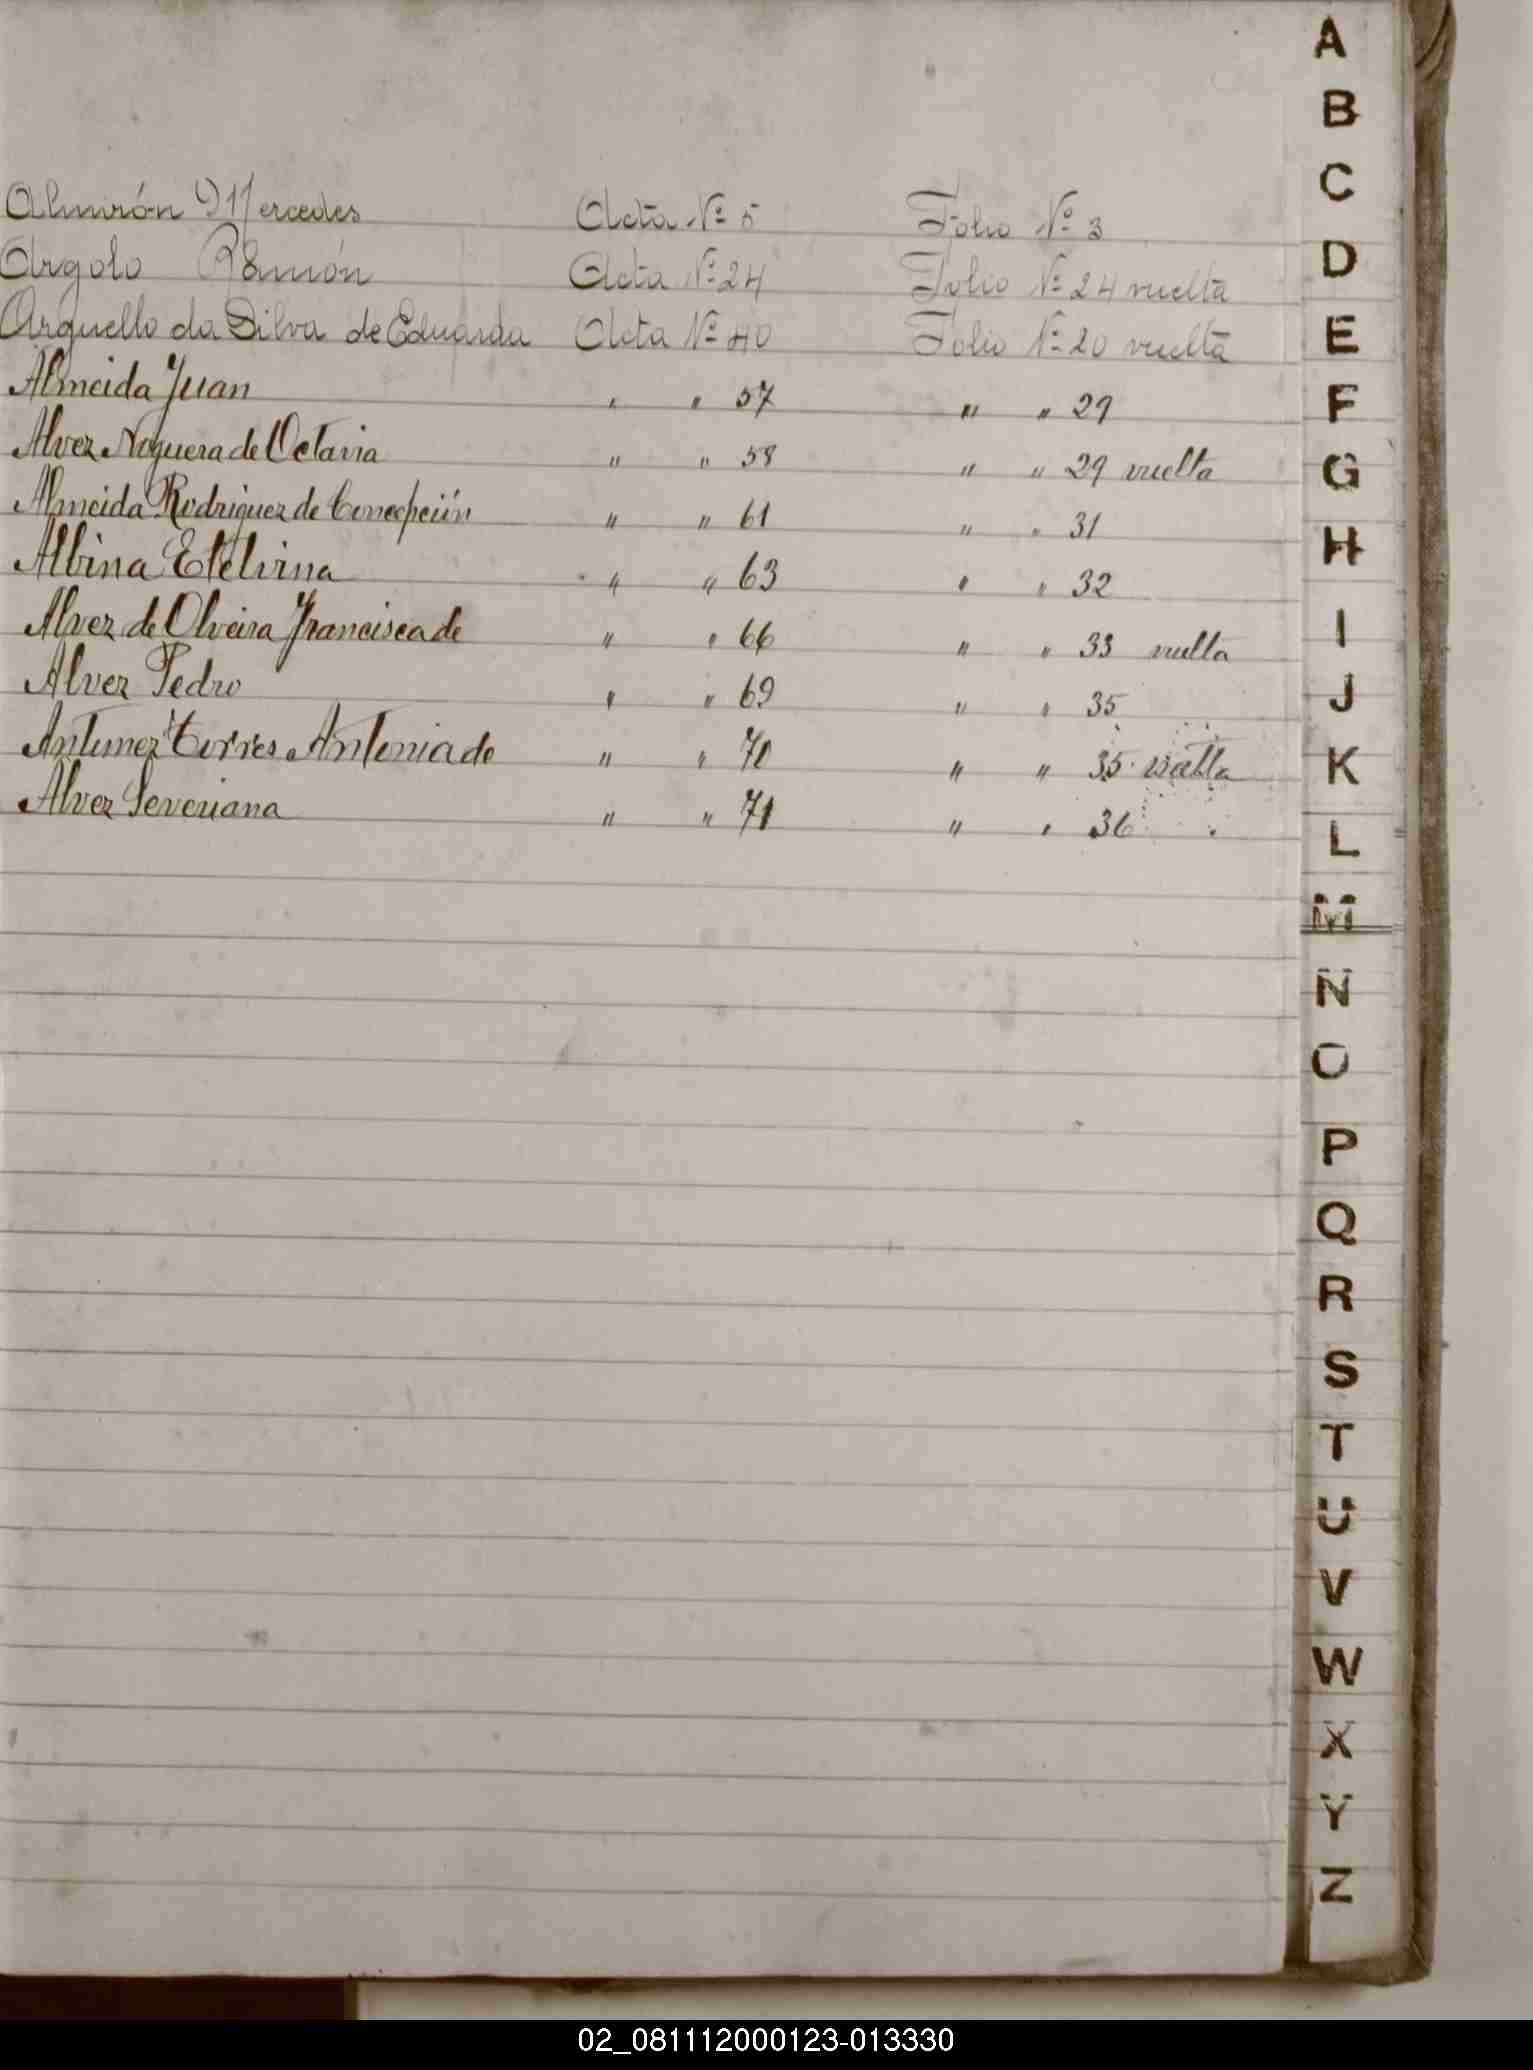 Almirón Mercedes Acta Nº 5 Folio Nº 3
Argolo Ramón Acta Nº 24 Folio Nº 24 vuelta
Arguello da Silva de Eduarda Acta Nº 40 Folio Nº 20 vuelta
Almeida Juan " " 57 " " 29
Alvez Noguera de Octavia " " 58 " " 29 vuelta
Almeida Rodriguez de Concepción " " 61 " " 31
Albina Etelvina " " 63 " " 32
Alvez de Olveira Francisca de " " 66 " " 33 vuelta
Alvez Pedro " " 69 " " 35
Antunez Torres Antonia de " " 70 " " 35 vuelta
Alvez Severiana " " 71 " " 36
A
B
C
D
E
F
G
H
I
J
K
L
M
N
O
P
Q
R
S
T
U
V
W
X
Y
Z
02_081112000123-013330